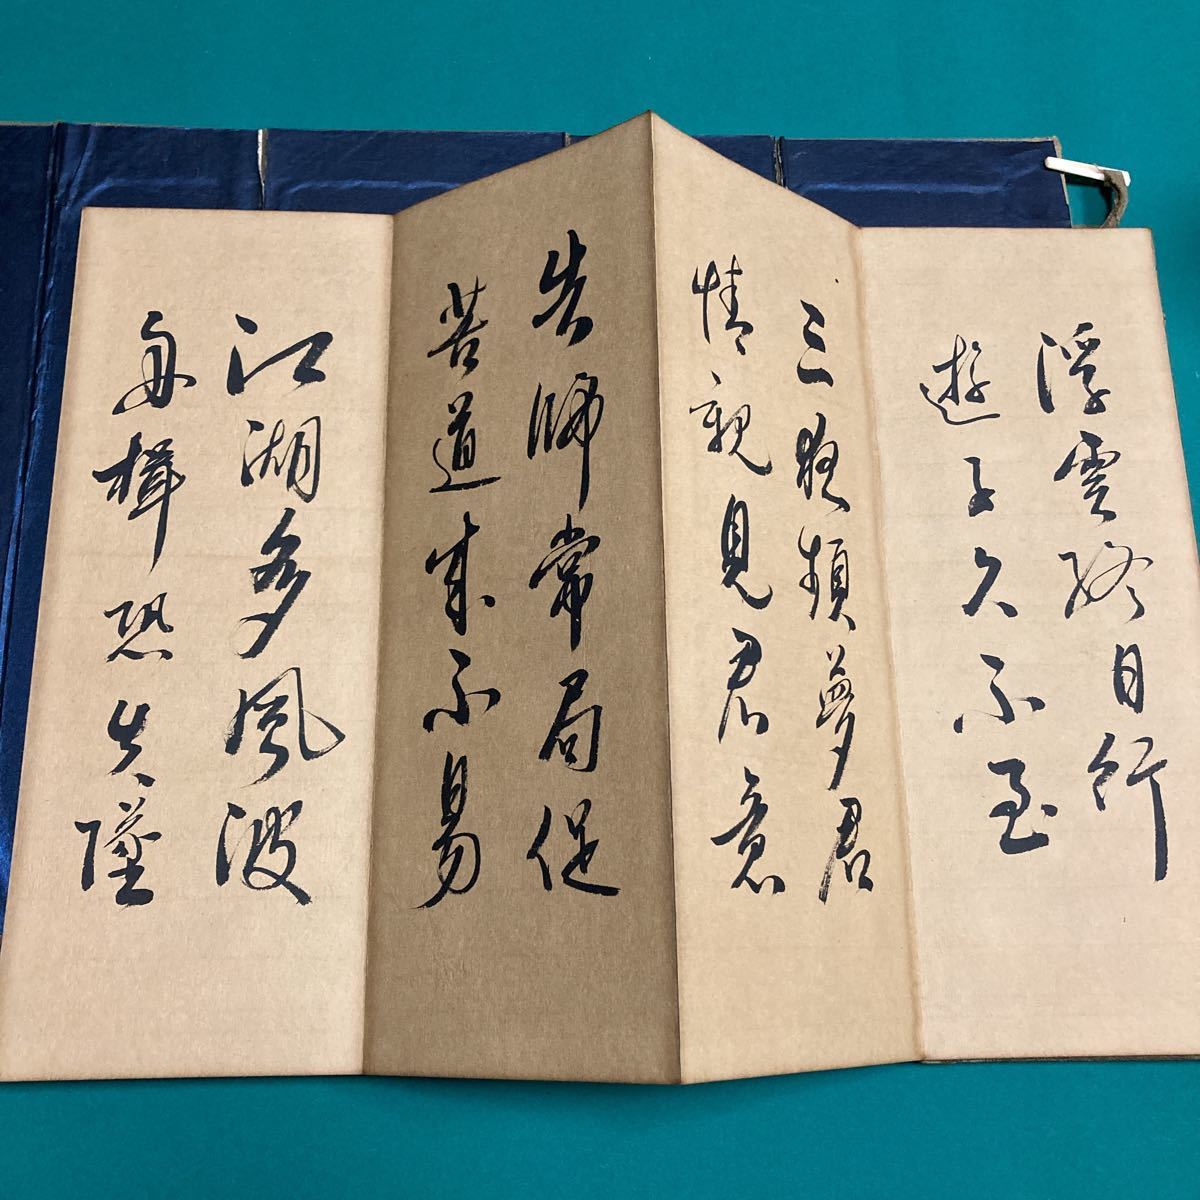 浮雲終日行
遊子久不至
三夜頻夢君
情親見君意
告歸常局促
苦道來不易
江湖多風波
舟楫恐失墜